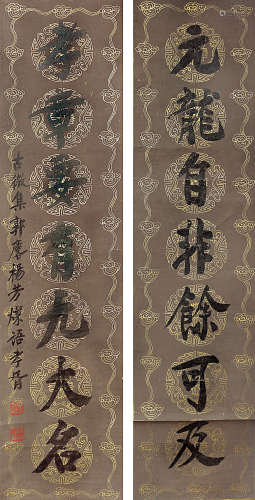 元龍自非餘可及
孝章要有九大名
古微集郭麐楊芳燦語 孝胥